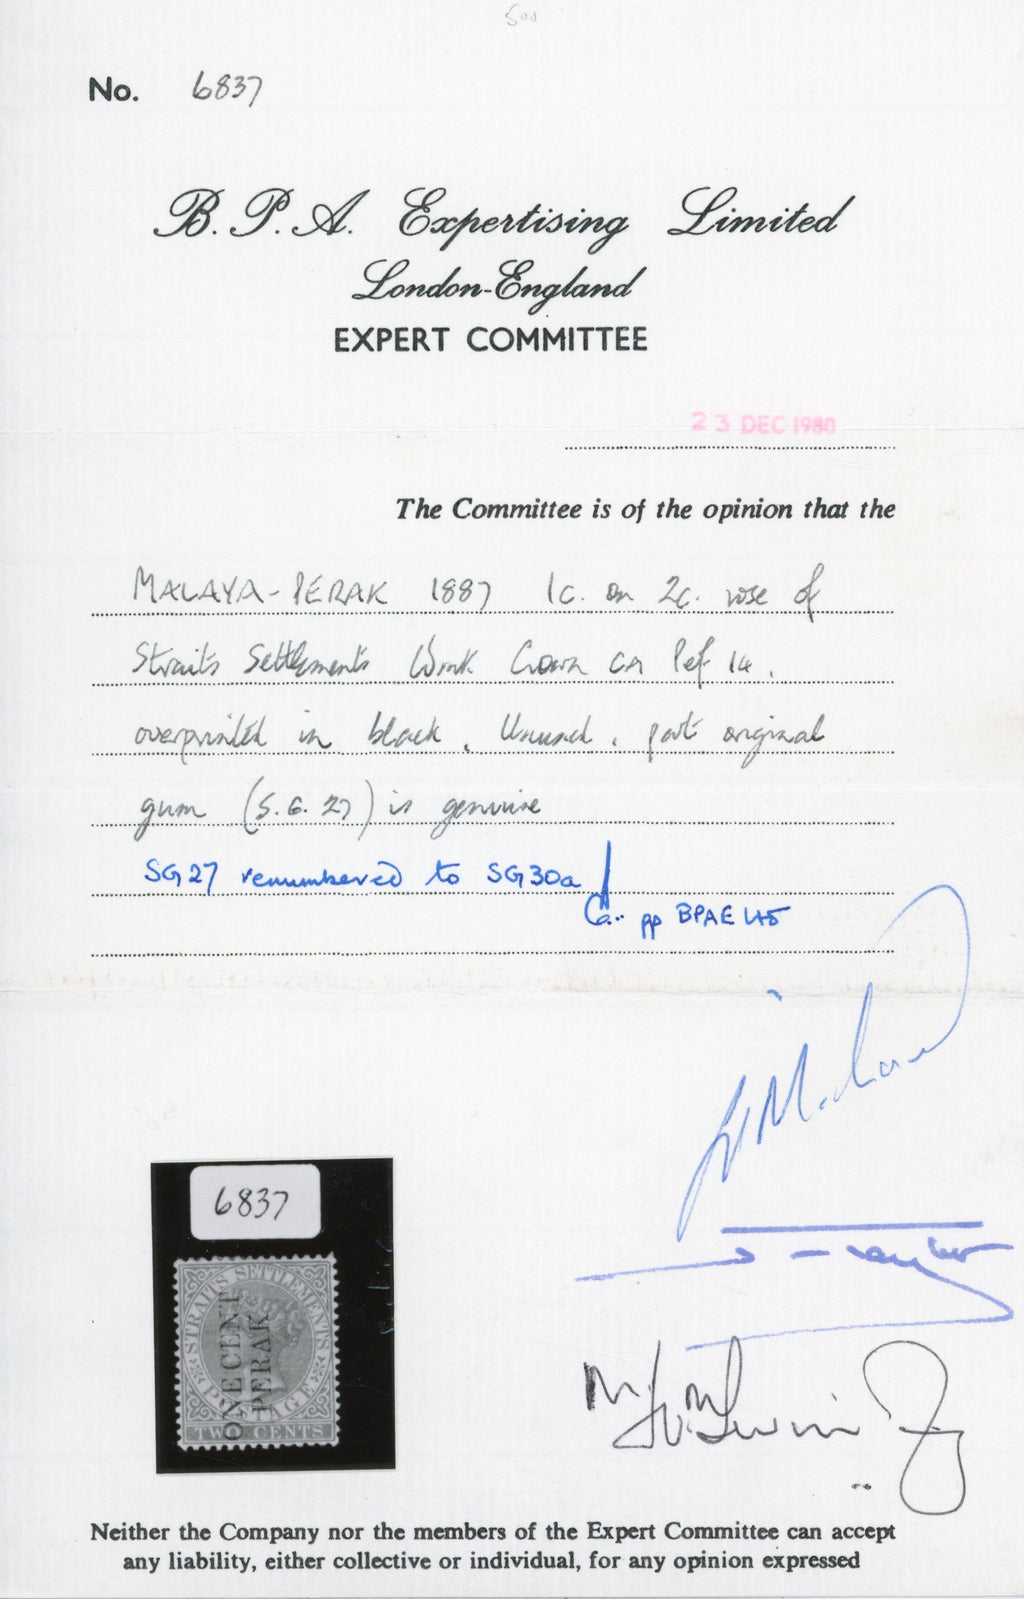 500
No. 6837
B. P. A. Expertising Limited
London-England
EXPERT COMMITTEE
23 DEC 1980
The Committee is of the opinion that the
MALAYA - PERAK 1887 1c. on 2c. rose of
Straits Settlements Wmk Crown CA Perf 14.
overprinted in black. Unused. part original
gum (S.G. 27) is genuine
SG27 renumbered to SG30a
pp BPAE Ltd
6837
STRAITS SETTLEMENTS
ONE CENT
PERAK
POSTAGE
TWO CENTS
Neither the Company nor the members of the Expert Committee can accept
any liability, either collective or individual, for any opinion expressed